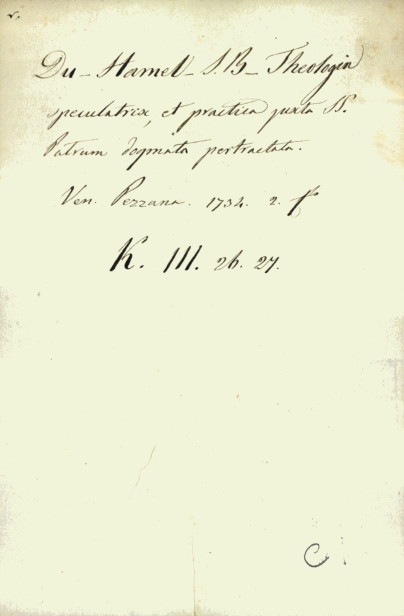 Du-Hamel-J.B- Theologia
speculatrix, et practica juxta SS.
Patrum dogmata pertractata.
Ven. Pezzana. 1734. 2. f
K. III. 26. 27.
C